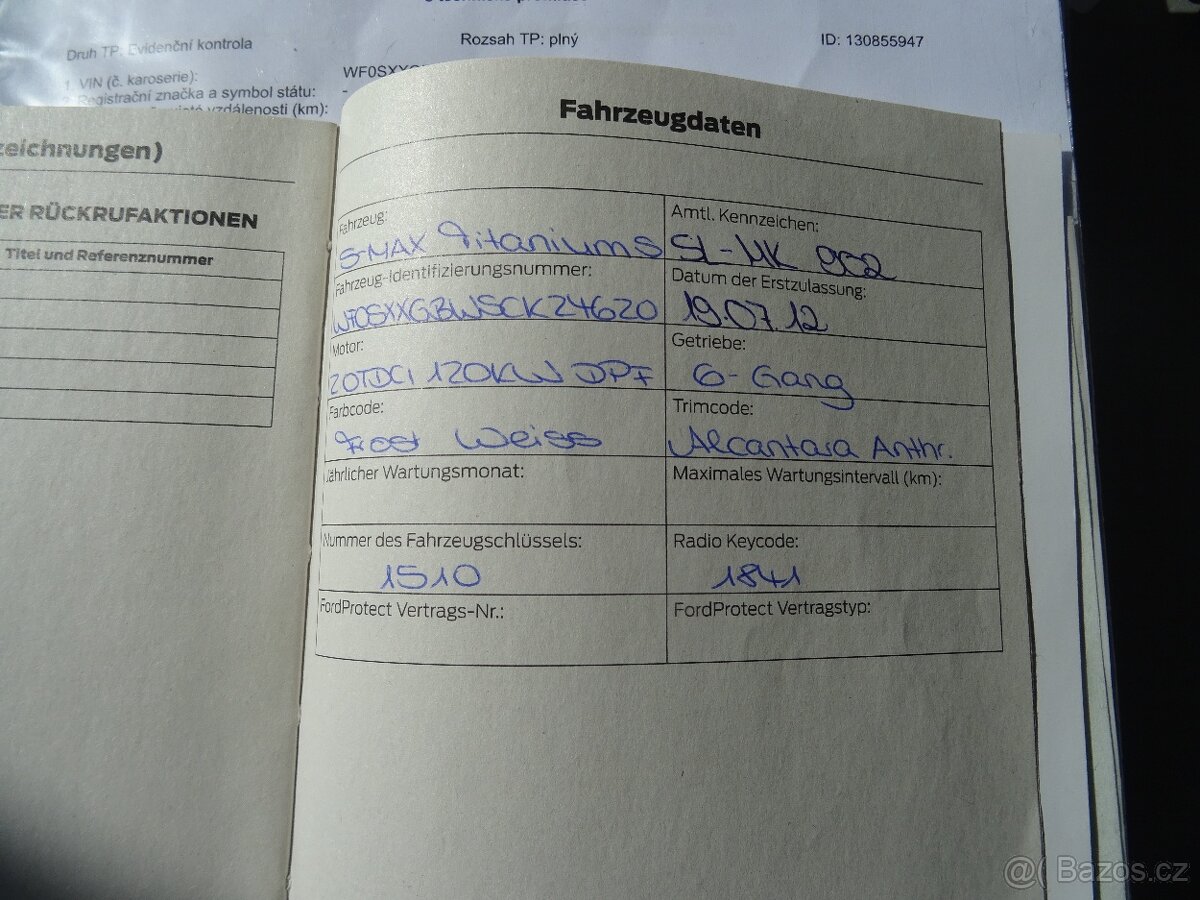 Druh TP: Evidenční kontrola
Rozsah TP: plný
ID: 130855947
1. VIN (č. karoserie):
WF0SXX
Registrační značka a symbol státu: -
vzdálenosti (km):
zeichnungen)
ER RÜCKRUFAKTIONEN
Titel und Referenznummer
Fahrzeugdaten
Fahrzeug:
S-MAX Titanium S
Amtl. Kennzeichen:
SL-MK 902
Fahrzeug-Identifizierungsnummer:
WF0SXXGBWSCK24620
Datum der Erstzulassung:
19.07.12
Motor:
2.0TDCI 120KW DPF
Getriebe:
6-Gang
Farbcode:
Frost Weiss
Trimcode:
Alcantara Anthr.
Jährlicher Wartungsmonat:
Maximales Wartungsintervall (km):
Nummer des Fahrzeugschlüssels:
1510
Radio Keycode:
1841
FordProtect Vertrags-Nr.:
FordProtect Vertragstyp:
@( Bazos.cz